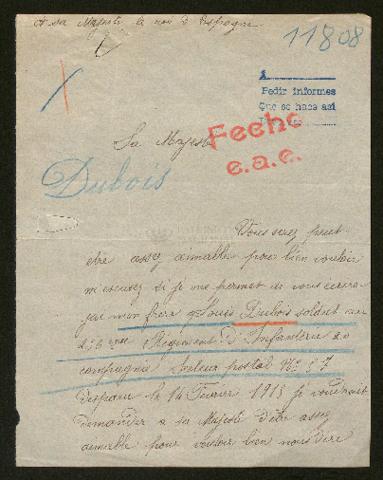 A sa Majesté le roi d'Espagne
11808
Pedir informes
Que se hace asi
Fecho
e.a.e.
Sa Majesté
Dubois
Vous serez peut
etre assez aimable pour bien vouloir
m'excusez si je me permet de vous écrire
car mon frère Louis Dubois soldat au
Régiment d'Infanterie
compagnie Secteur postal No 57
Disparu le 14 Février 1915 je voudrait
demander a sa Majesté d'être assez
aimable pour vouloir bien nous dire